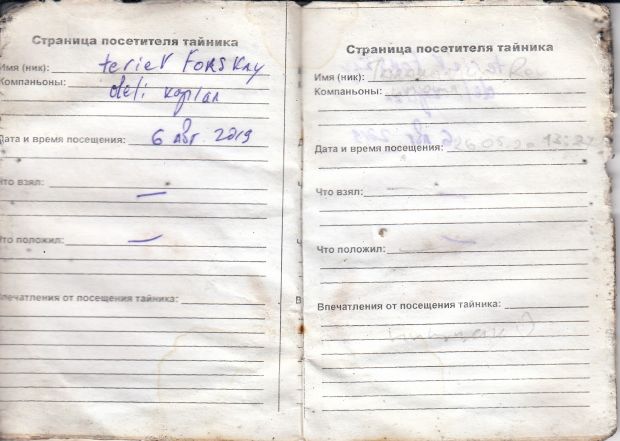 Страница посетителя тайника
Имя (ник): teriev Forskay
Компаньоны: deli kaplan
Дата и время посещения: 6 авг. 2019
Что взял: —
Что положил: —
Впечатления от посещения тайника:
Страница посетителя тайника
Имя (ник):
Компаньоны:
Дата и время посещения:
Что взял:
Что положил:
Впечатления от посещения тайника: